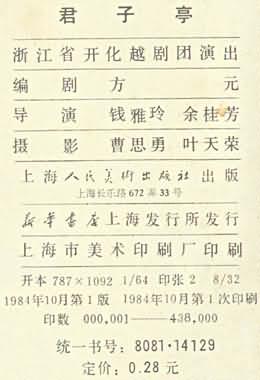 君子亭
浙江省开化越剧团演出
编剧 方元
导演 钱雅玲 余桂芳
摄影 曹思勇 叶天荣
上海人民美术出版社出版
上海长乐路672弄33号
新华书店上海发行所发行
上海市美术印刷厂印刷
开本 787×1092 1/64 印张 2 8/32
1984年10月第1版 1984年10月第1次印刷
印数 000,001——438,000
统一书号：8081·14129
定价：0.28元